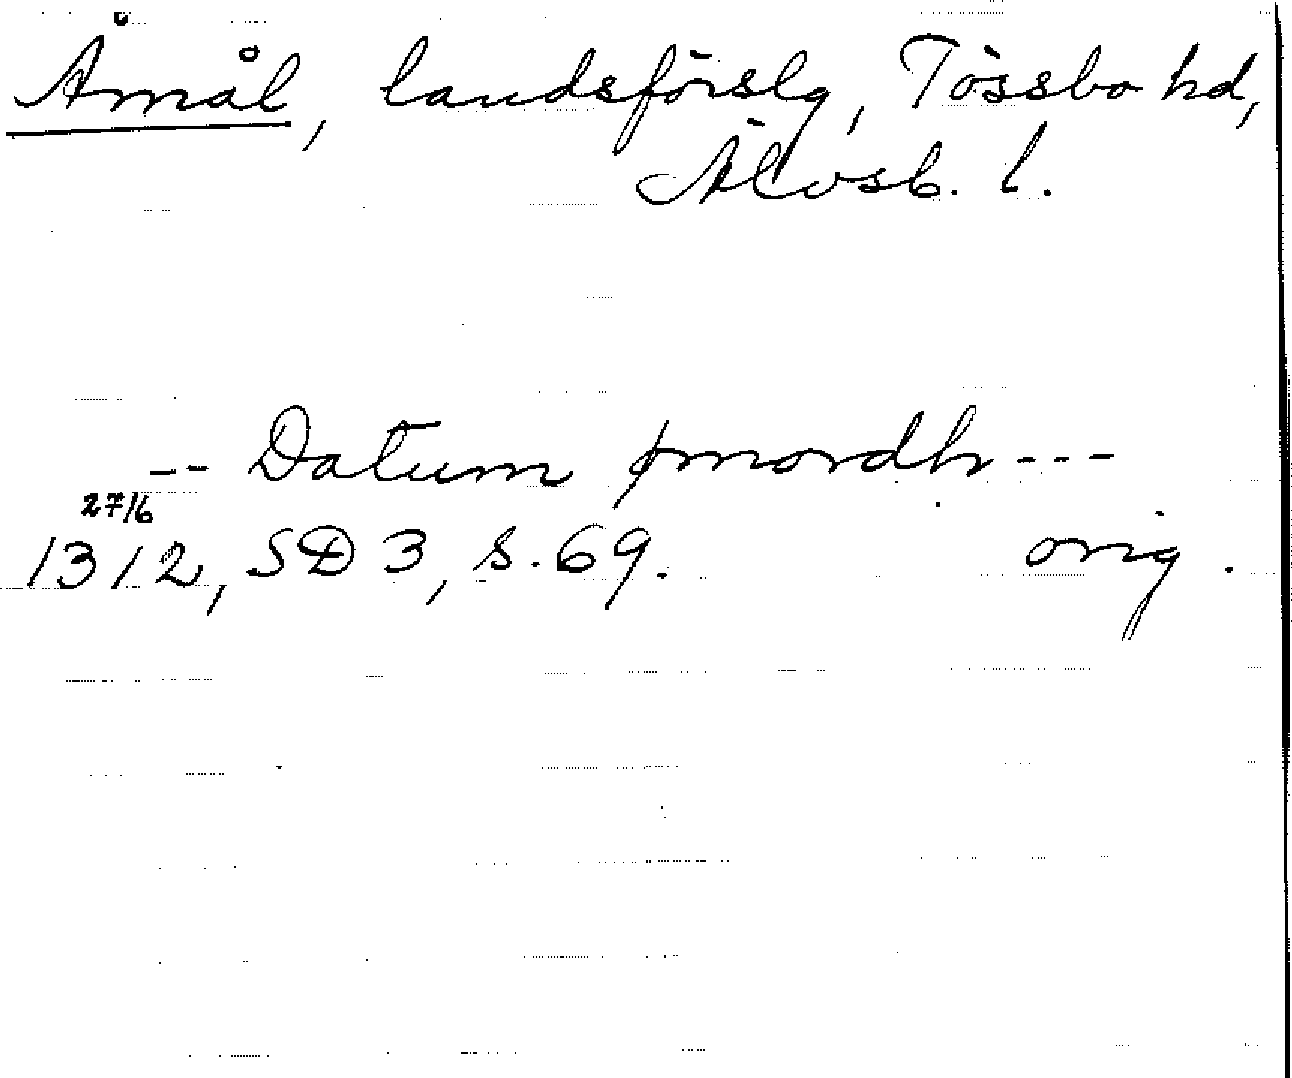 Åmål, landsförslg, Tössbo hd,
Älvsb. l.
-- Datum ømordh ---
27/6
1312, SD 3, s. 69. orig.